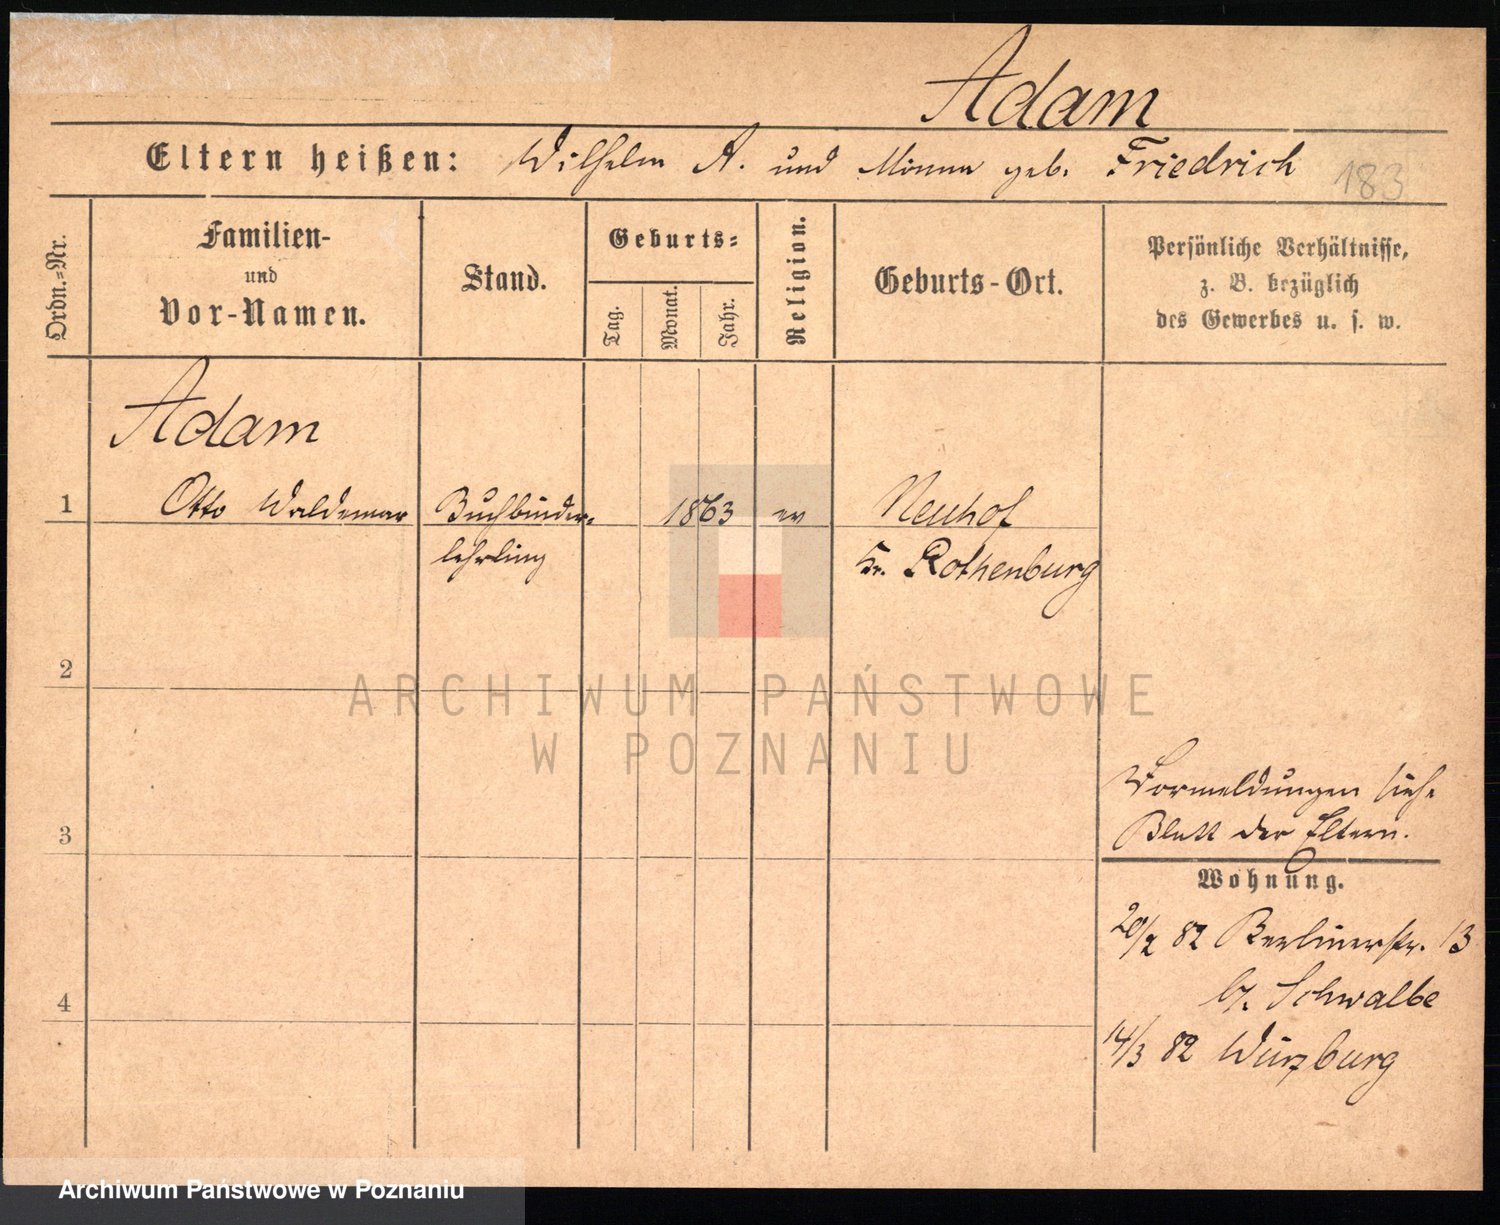 Adam
Eltern heißen: Wilhelm A. und Minna geb. Friedrich
183
Ordn.-Nr.
Familien-
und
Vor-Namen.
Stand.
Geburts-
Tag.
Monat.
Jahr.
Religion.
Geburts-Ort.
Persönliche Verhältnisse,
z. B. bezüglich
des Gewerbes u. s. w.
Adam
1 Otto Waldemar Buchbinder- 1863 ev Neuhof
lehrling Kr. Rothenburg
2
ARCHIWUM PAŃSTWOWE
W POZNANIU
Vormeldungen siehe
3 Blatt der Eltern.
Wohnung.
20/2 82 Berlinerstr. 13
4 b/. Schwalbe
14/3 82 Würzburg
Archiwum Państwowe w Poznaniu